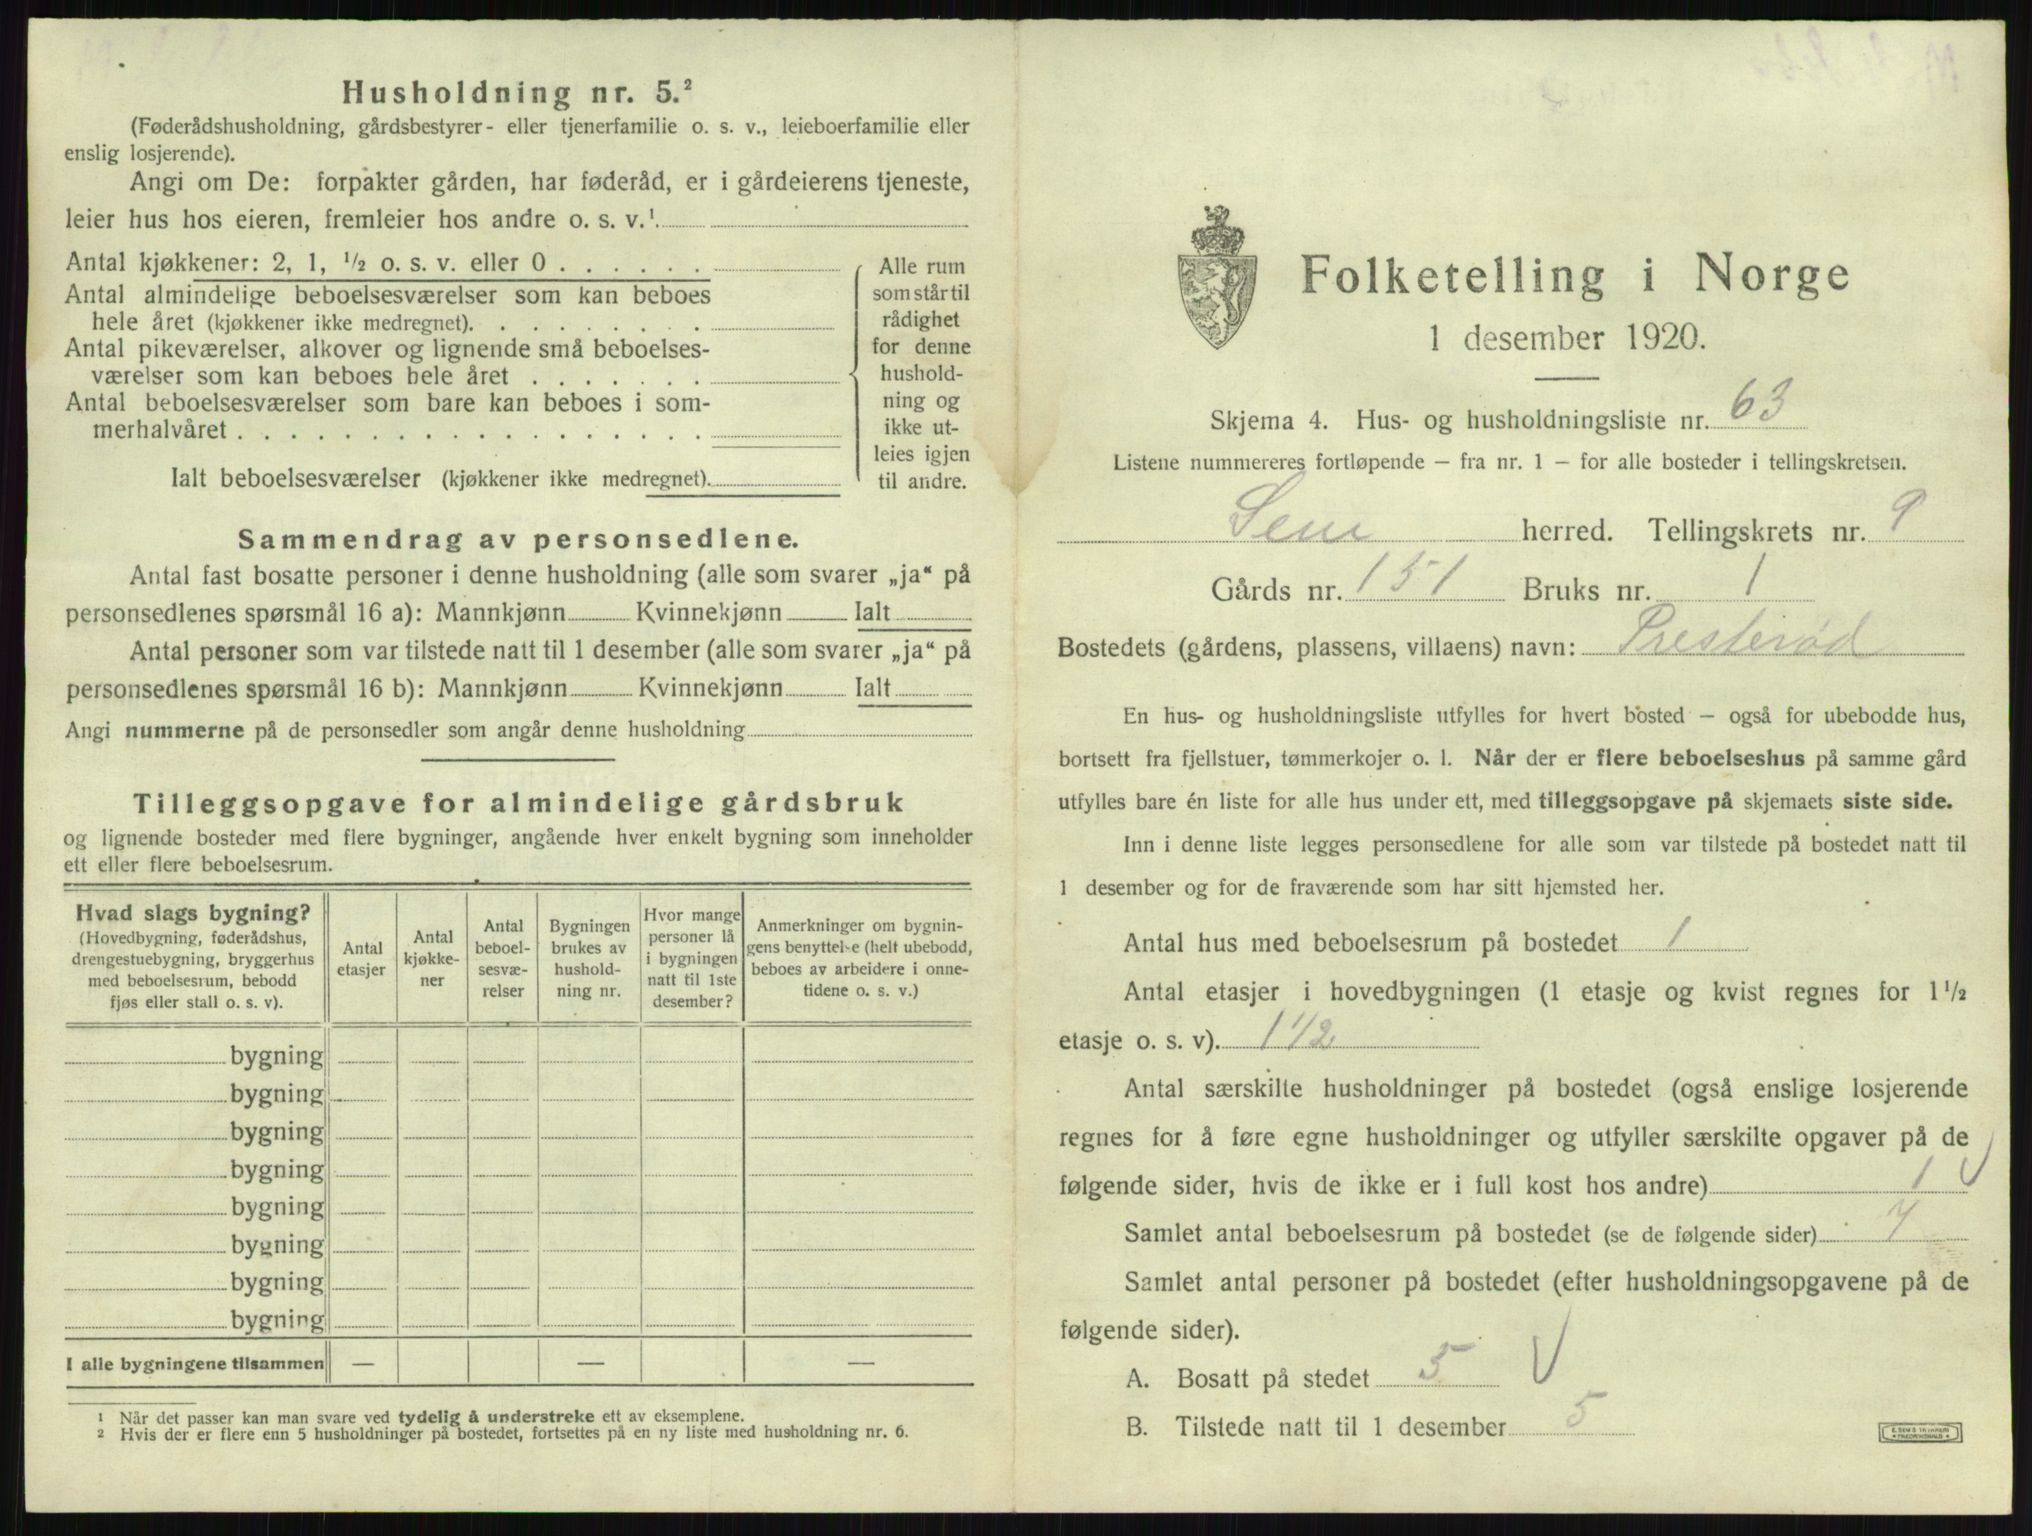 Husholdning nr. 5.²
(Føderådshusholdning, gårdsbestyrer- eller tjenerfamilie o. s. v., leieboerfamilie eller
enslig losjerende).
Angi om De: forpakter gården, har føderåd, er i gårdeierens tjeneste,
leier hus hos eieren, fremleier hos andre o. s. v.¹
Antal kjøkkener: 2, 1, ½ o. s. v. eller 0 . . . . . .
Antal almindelige beboelsesværelser som kan beboes
hele året (kjøkkener ikke medregnet). . . . . . . . .
Antal pikeværelser, alkover og lignende små beboelses-
værelser som kan beboes hele året . . . . . . .
Antal beboelsesværelser som bare kan beboes i som-
merhalvåret . . . . . . . . . . . . . . . . . .
Ialt beboelsesværelser (kjøkkener ikke medregnet).
Alle rum
som står til
rådighet
for denne
hushold-
ning og
ikke ut-
leies igjen
til andre.
Sammendrag av personsedlene.
Antal fast bosatte personer i denne husholdning (alle som svarer „ja“ på
personsedlenes spørsmål 16 a): Mannkjønn Kvinnekjønn Ialt
Antal personer som var tilstede natt til 1 desember (alle som svarer „ja“ på
personsedlenes spørsmål 16 b): Mannkjønn Kvinnekjønn Ialt
Angi nummerne på de personsedler som angår denne husholdning
Tilleggsopgave for almindelige gårdsbruk
og lignende bosteder med flere bygninger, angående hver enkelt bygning som inneholder
ett eller flere beboelsesrum.
Hvad slags bygning?
(Hovedbygning, føderådshus,
drengestuebygning, bryggerhus
med beboelsesrum, bebodd
fjøs eller stall o. s. v).
Antal
etasjer
Antal
kjøkke-
ner
Antal
beboel-
sesvæ-
relser
Bygningen
brukes av
hushold-
ning nr.
Hvor mange
personer lå
i bygningen
natt til 1ste
desember?
Anmerkninger om bygnin-
gens benyttelse (helt ubebodd,
beboes av arbeidere i onne-
tidene o. s. v.)
bygning
bygning
bygning
bygning
bygning
bygning
bygning
bygning
I alle bygningene tilsammen — — —
¹ Når det passer kan man svare ved tydelig å understreke ett av eksemplene.
² Hvis der er flere enn 5 husholdninger på bostedet, fortsettes på en ny liste med husholdning nr. 6.
Folketelling i Norge
1 desember 1920.
Skjema 4. Hus- og husholdningsliste nr. 63
Listene nummereres fortløpende — fra nr. 1 — for alle bosteder i tellingskretsen.
Sem herred. Tellingskrets nr. 9
Gårds nr. 151 Bruks nr. 1
Bostedets (gårdens, plassens, villaens) navn: Presterød
En hus- og husholdningsliste utfylles for hvert bosted — også for ubebodde hus,
bortsett fra fjellstuer, tømmerkojer o. l. Når der er flere beboelseshus på samme gård
utfylles bare én liste for alle hus under ett, med tilleggsopgave på skjemaets siste side.
Inn i denne liste legges personsedlene for alle som var tilstede på bostedet natt til
1 desember og for de fraværende som har sitt hjemsted her.
Antal hus med beboelsesrum på bostedet 1
Antal etasjer i hovedbygningen (1 etasje og kvist regnes for 1½
etasje o. s. v). 1 1/2
Antal særskilte husholdninger på bostedet (også enslige losjerende
regnes for å føre egne husholdninger og utfyller særskilte opgaver på de
følgende sider, hvis de ikke er i full kost hos andre) 1 √
Samlet antal beboelsesrum på bostedet (se de følgende sider) 7
Samlet antal personer på bostedet (efter husholdningsopgavene på de
følgende sider).
A. Bosatt på stedet 5 √
B. Tilstede natt til 1 desember 5
E. SEM'S TRYKKERI
FREDRIKSHALD